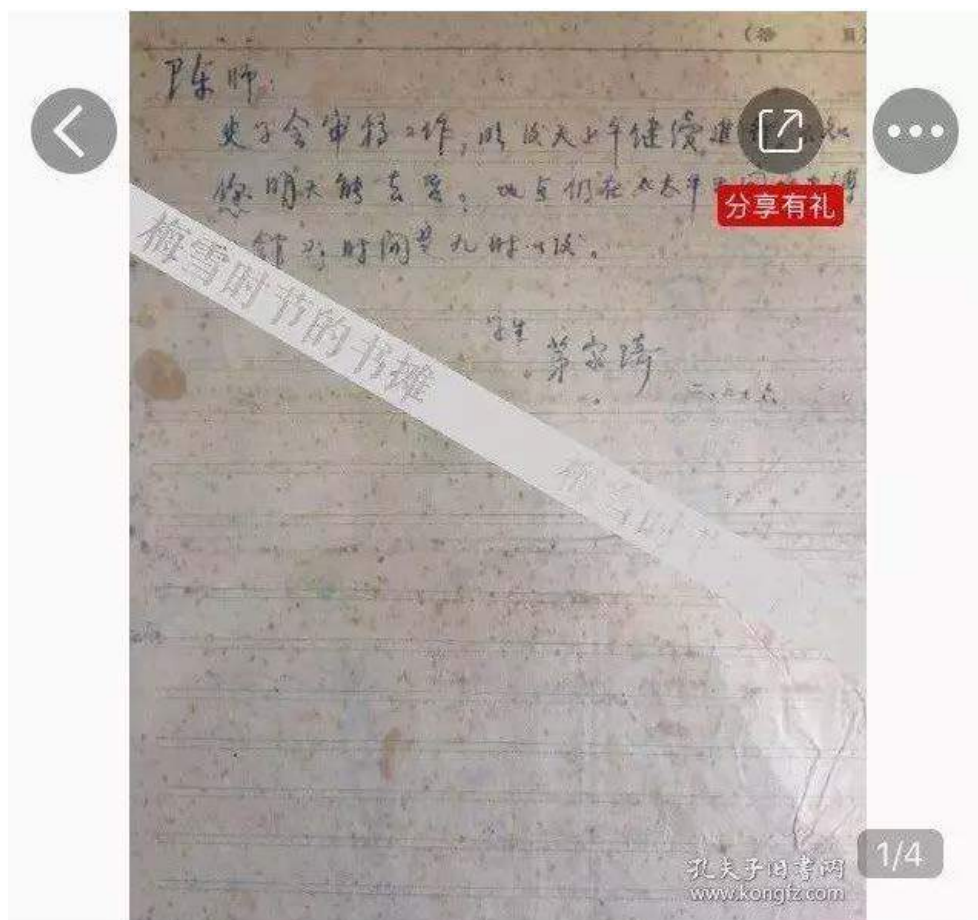 (第 页)
陈师:
史学会审稿工作,明后天上午继续进
您明天能去否?地点仍在太平天国
馆,时间是九时以后。
学生 茅家琦
分享有礼
梅雪时节的书摊
1/4
孔夫子旧书网
www.kongfz.com